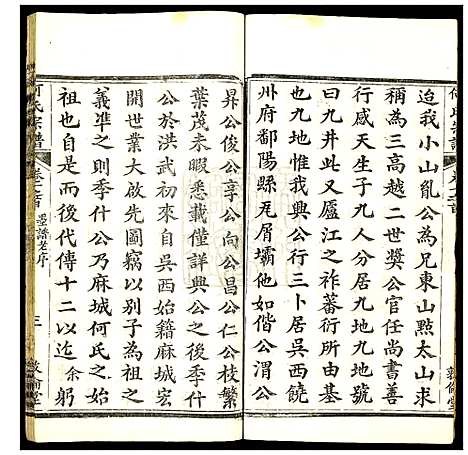 迨我小山亂公為兄東山㸃太山求
稱為三高越二世獎公官任尚書善
行感天生子九人分居九地九地號
為九井此又廬江之祚蕃衍所由基
也九井惟我興公行三卜居吳西饒
州府鄱陽縣瓦屑壩他如偕公渭公
昇公俊公享公向公昌公仁公枝繁
葉茂未暇悉載僅詳興公之後季什
公於洪武初自吳西始籍麻城
開世業大啟先圖竊以別子為祖之
義準之則季什公乃麻城何氏之始
祖也而後代傳十二以迄余躬
何氏宗譜
卷之首
墨譜老序
三
敦倫堂